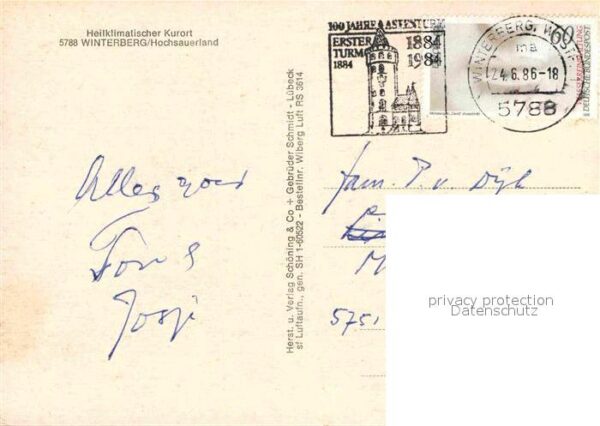 Heilklimatischer Kurort
5788 WINTERBERG/Hochsauerland
100 JAHRE ASTENTURM
ERSTER
TURM
1884
1884
1984
60
DEUTSCHE BUNDESPOST
WINTERBERG, WESTF
ma
24.6.86-18
5788
Herst. u. Verlag Schöning & Co + Gebrüder Schmidt - Lübeck
sf Luftaufn., gen. SH 1-60522 - Bestellnr. Wiberg Luft RS 3614
Alles goed
Ton &
Josje
Fam. P. v. Dijk
M
5751
privacy protection
Datenschutz